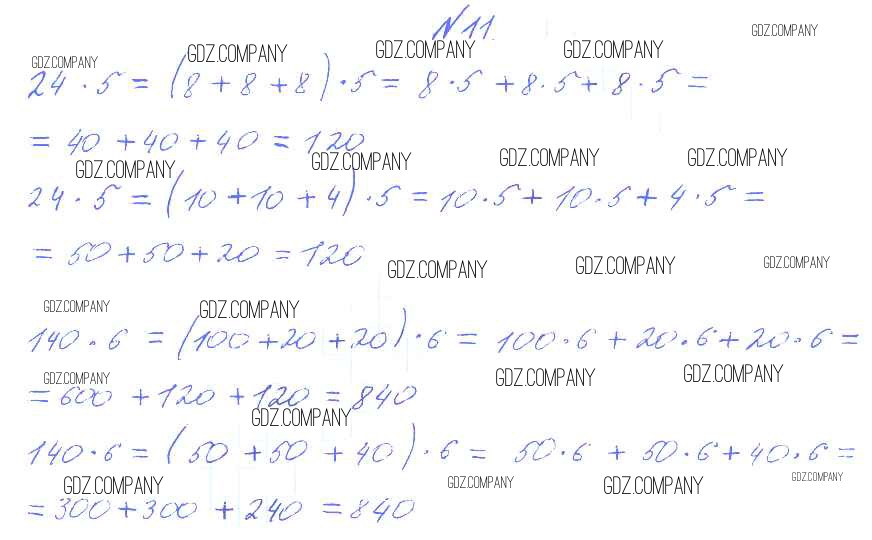 №11.
GDZ.COMPANY
GDZ.COMPANY GDZ.COMPANY GDZ.COMPANY GDZ.COMPANY
24 · 5 = (8 + 8 + 8) · 5 = 8 · 5 + 8 · 5 + 8 · 5 =
= 40 + 40 + 40 = 120
GDZ.COMPANY GDZ.COMPANY GDZ.COMPANY GDZ.COMPANY
24 · 5 = (10 + 10 + 4) · 5 = 10 · 5 + 10 · 5 + 4 · 5 =
= 50 + 50 + 20 = 120
GDZ.COMPANY GDZ.COMPANY GDZ.COMPANY
GDZ.COMPANY GDZ.COMPANY
140 · 6 = (100 + 20 + 20) · 6 = 100 · 6 + 20 · 6 + 20 · 6 =
GDZ.COMPANY GDZ.COMPANY GDZ.COMPANY
= 600 + 120 + 120 = 840
GDZ.COMPANY
140 · 6 = (50 + 50 + 40) · 6 = 50 · 6 + 50 · 6 + 40 · 6 =
GDZ.COMPANY GDZ.COMPANY GDZ.COMPANY GDZ.COMPANY
= 300 + 300 + 240 = 840